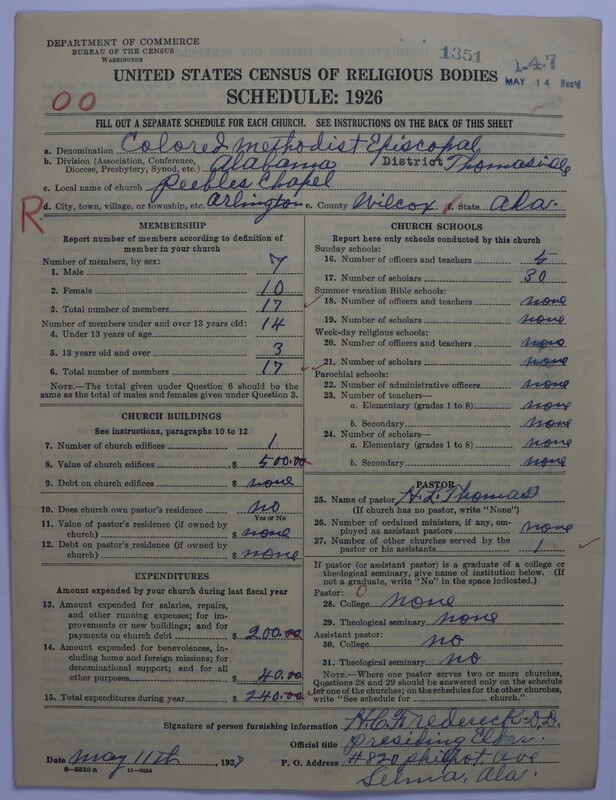 DEPARTMENT OF COMMERCE
BUREAU OF THE CENSUS
WASHINGTON
1351
1-47
MAY 14 Rec'd
UNITED STATES CENSUS OF RELIGIOUS BODIES
SCHEDULE: 1926
00
FILL OUT A SEPARATE SCHEDULE FOR EACH CHURCH. SEE INSTRUCTIONS ON THE BACK OF THIS SHEET
a. Denomination Colored Methodist Episcopal
b. Division (Association, Conference, Diocese, Presbytery, Synod, etc.) Alabama District Thomasville
c. Local name of church Peebles Chapel
R
d. City, town, village, or township, etc. Arlington e. County Wilcox f. State Ala.
MEMBERSHIP
Report number of members according to definition of
member in your church
Number of members, by sex:
1. Male 7
2. Female 10
3. Total number of members 17
Number of members under and over 13 years old:
4. Under 13 years of age 14
5. 13 years old and over 3
6. Total number of members 17
NOTE.—The total given under Question 6 should be
same as the total of males and females given under Question 3.
CHURCH BUILDINGS
See instructions, paragraphs 10 to 12
7. Number of church edifices 1
8. Value of church edifices $ 500.00
9. Debt on church edifices $ none
10. Does church own pastor's residence no
Yes or No
11. Value of pastor's residence (if owned by
church) $ none
12. Debt on pastor's residence (if owned by
church) $ none
EXPENDITURES
Amount expended by your church during last fiscal year
13. Amount expended for salaries, repairs,
and other running expenses; for im-
provements or new buildings; and for
payments on church debt $ 200.00
14. Amount expended for benevolences, in-
cluding home and foreign missions; for
denominational support; and for all
other purposes $ 40.00
15. Total expenditures during year $ 240.00
CHURCH SCHOOLS
Report here only schools conducted by this church
Sunday schools:
16. Number of officers and teachers 5
17. Number of scholars 30
Summer vacation Bible schools:
18. Number of officers and teachers none
19. Number of scholars none
Week-day religious schools:
20. Number of officers and teachers none
21. Number of scholars none
Parochial schools:
22. Number of administrative officers none
23. Number of teachers—
a. Elementary (grades 1 to 8) none
b. Secondary none
24. Number of scholars—
a. Elementary (grades 1 to 8) none
b. Secondary none
PASTOR
25. Name of pastor H. L. Thomas
(If church has no pastor, write "None")
26. Number of ordained ministers, if any, em-
ployed as assistant pastors none
27. Number of other churches served by the
pastor or his assistants 1
If pastor (or assistant pastor) is a graduate of a college or
theological seminary, give name of institution below. (If
not a graduate, write "No" in the space indicated.)
Pastor:
28. College none
29. Theological seminary none
Assistant pastor:
30. College no
31. Theological seminary no
NOTE.—Where one pastor serves two or more churches,
Questions 28 and 29 should be answered only on the schedule
for one of the churches; on the schedules for the other churches,
write "See schedule for church."
Signature of person furnishing information H. C. Frederick D.D.
Official title Presiding Elder
Date May 11th, 1927 P. O. Address #820 Philpot Ave
Selma, Ala.
8—5318 a 11—8654